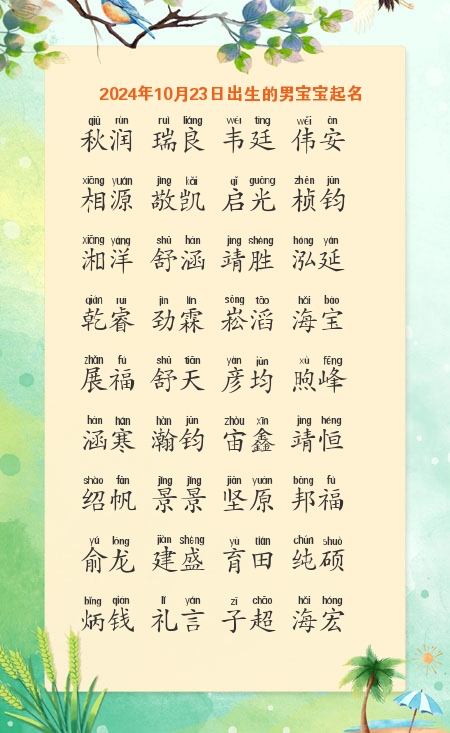 2024年10月23日出生的男宝宝起名
qiū rùn ruì liáng wéi tíng wěi ān
秋润 瑞良 韦廷 伟安
xiāng yuán jìng kǎi qǐ guāng zhēn jūn
相源 敬凯 启光 桢钧
xiāng yáng shū hán jìng shèng hóng yán
湘洋 舒涵 靖胜 泓延
qián ruì jìn lín sōng tāo hǎi bǎo
乾睿 劲霖 崧滔 海宝
zhǎn fú shū tiān yàn jūn xù fēng
展福 舒天 彦均 煦峰
hán hán hàn jūn zhòu xīn jìng héng
涵寒 瀚钧 宙鑫 靖恒
shào fān jǐng jǐng jiān yuán bāng fú
绍帆 景景 坚原 邦福
yú lóng jiàn shèng yù tián chún shuò
俞龙 建盛 育田 纯硕
bǐng qián lǐ yán zǐ chāo hǎi hóng
炳钱 礼言 子超 海宏